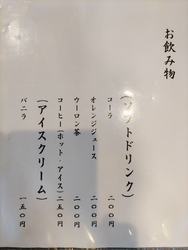 お飲み物
(ソフトドリンク)
コーラ 二〇〇
オレンジジュース 二〇〇
ウーロン茶 二〇〇
コーヒー(ホット・アイス)二五〇
(アイスクリーム)
バニラ 一五〇